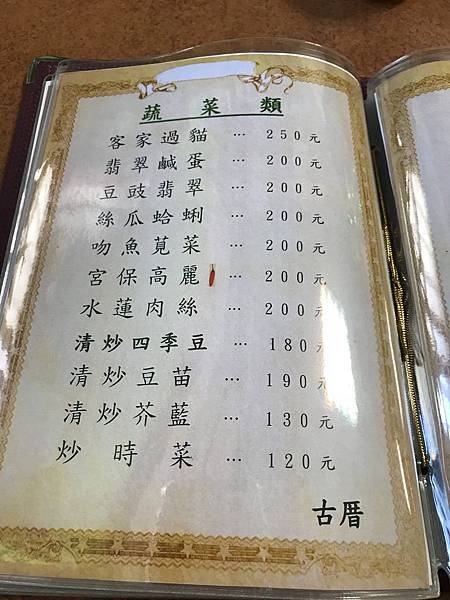 蔬菜類
客家過貓 … 250元
翡翠鹹蛋 … 200元
豆豉翡翠 … 200元
絲瓜蛤蜊 … 200元
吻魚莧菜 … 200元
宮保高麗 … 200元
水蓮肉絲 … 200元
清炒四季豆 … 180元
清炒豆苗 … 190元
清炒芥藍 … 130元
炒時菜 … 120元
古厝